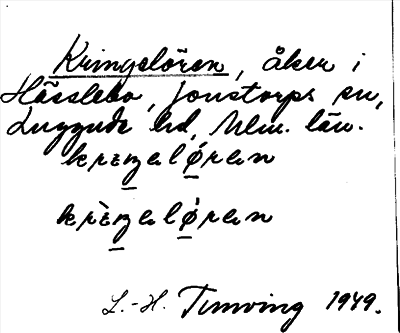 Kringelören, åker i
Hässlebo, Jonstorps sn,
Luggude hd, Mlm. län.
krɪŋəlǿrən
krɪ̀ŋəlǿrən
L.-H. 1949.